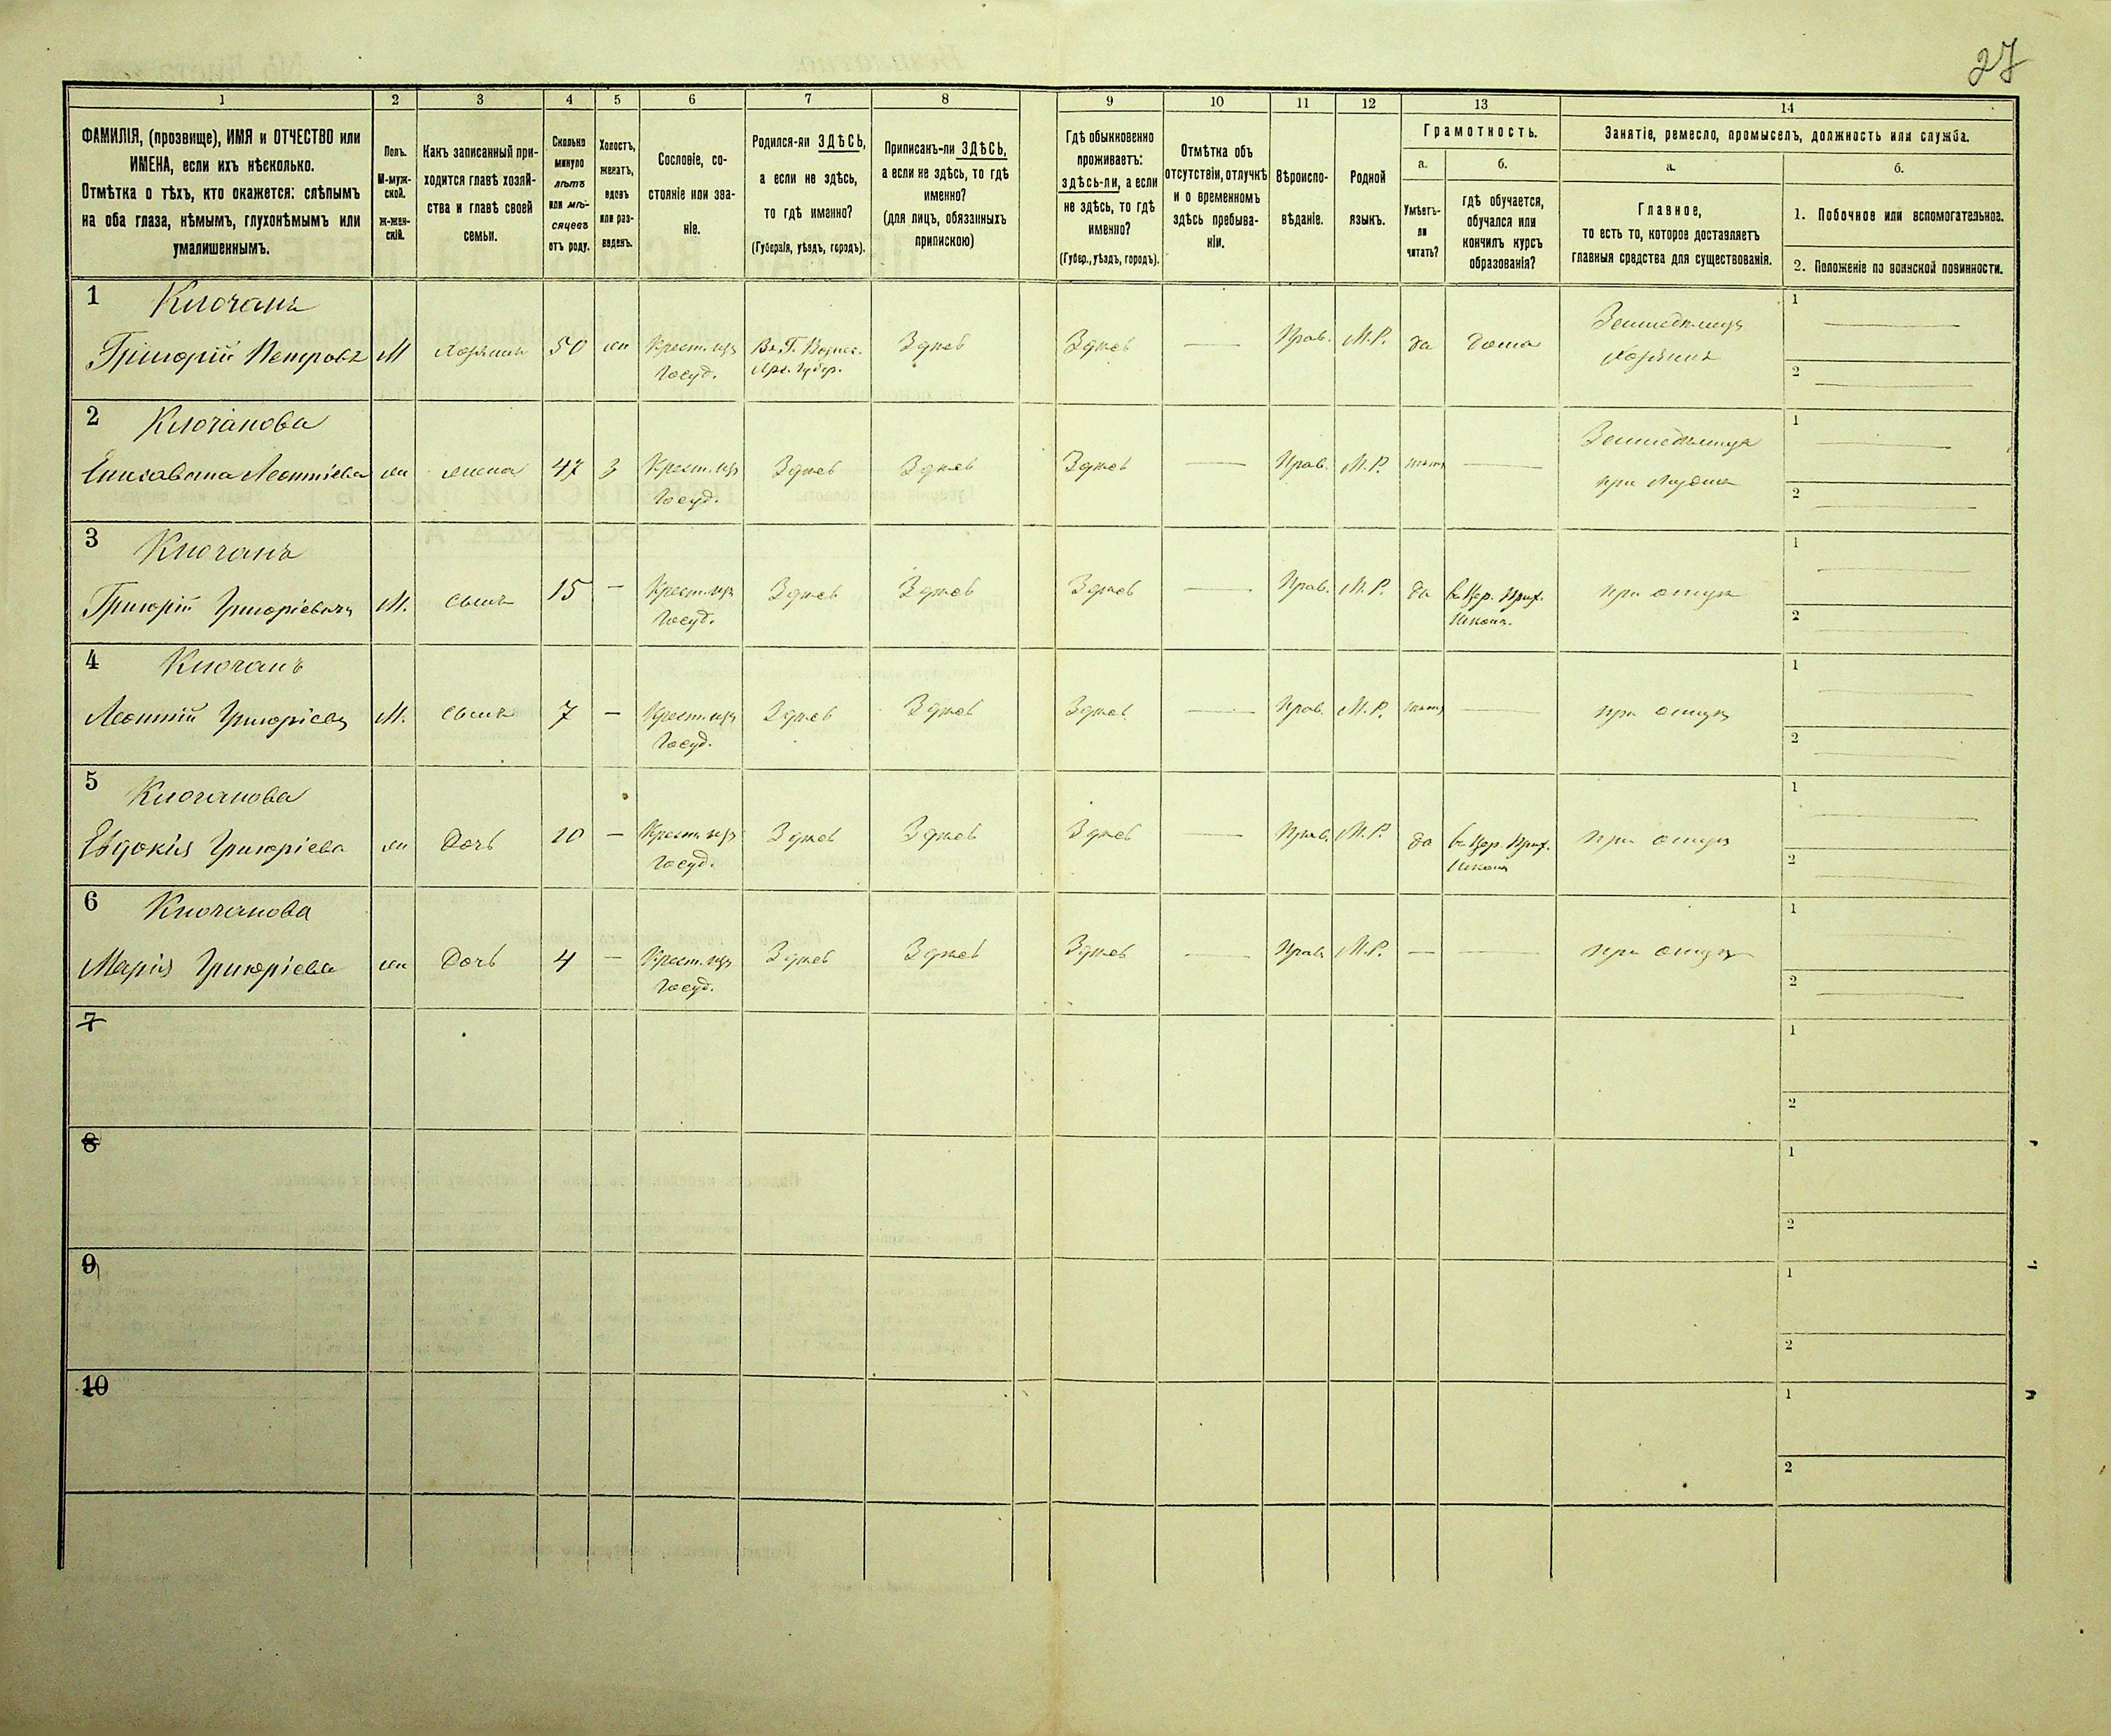 27
1 2 3 4 5 6 7 8 9 10 11 12 13 14
ФАМИЛІЯ, (прозвище), ИМЯ и ОТЧЕСТВО или
ИМЕНА, если ихъ нѣсколько.
Отмѣтка о тѣхъ, кто окажется: слѣпымъ
на оба глаза, нѣмымъ, глухонѣмымъ или
умалишеннымъ.
Полъ.
М-муж-
ской.
Ж-жен-
скій.
Какъ записанный при-
ходится главѣ хозяй-
ства и главѣ своей
семьи.
Сколько
минуло
лѣтъ
или мѣ-
сяцевъ
отъ роду.
Холостъ,
женатъ,
вдовъ
или раз-
веденъ.
Сословіе, со-
стояніе или зва-
ніе.
Родился-ли ЗДѢСЬ,
а если не здѣсь,
то гдѣ именно?
(Губернія, уѣздъ, городъ).
Приписанъ-ли ЗДѢСЬ,
а если не здѣсь, то гдѣ
именно?
(для лицъ, обязанныхъ
припискою)
Гдѣ обыкновенно
проживаетъ:
здѣсь-ли, а если
не здѣсь, то гдѣ
именно?
(Губер., уѣздъ, городъ).
Отмѣтка объ
отсутствіи, отлучкѣ
и о временномъ
здѣсь пребыва-
ніи.
Вѣроиспо-
вѣданіе.
Родной
языкъ.
Грамотность.
а.
Умѣетъ-
ли
читать?
б.
гдѣ обучается,
обучался или
кончилъ курсъ
образованія?
Занятіе, ремесло, промыселъ, должность или служба.
а.
Главное,
то есть то, которое доставляетъ
главныя средства для существованія.
б.
1. Побочное или вспомогательное.
2. Положеніе по воинской повинности.
1 Ключанъ
Григорій Петровъ М Хозяинъ 50 жн Крест. изъ Госуд. Здѣсь Здѣсь — Прав. М.Р. да дома Земледѣлецъ Хозяинъ 1 — 2 —
2 Ключанова
Елизавета Леонтіева жн жена 47 З Крест. изъ Госуд. Здѣсь Здѣсь Здѣсь — Прав. М.Р. нѣтъ — Земледѣлица при 1 — 2 —
3 Ключанъ
Григорій Григоріевичъ М. сынъ 15 — Крест. изъ Госуд. Здѣсь Здѣсь Здѣсь — Прав. М.Р. да въ Цер. Прих. Школѣ. при отцѣ 1 — 2 —
4 Ключанъ
Леонтій Григоріевъ М. сынъ 7 — Крест. изъ Госуд. Здѣсь Здѣсь Здѣсь — Прав. М.Р. нѣтъ — при отцѣ 1 — 2 —
5 Ключанова
Евдокія Григоріева жн Дочь 10 — Крест. изъ Госуд. Здѣсь Здѣсь Здѣсь — Прав. М.Р. да въ Цер. Прих. Школѣ при отцѣ 1 — 2 —
6 Ключанова
Марія Григоріева жн Дочь 4 — Крест. изъ Госуд. Здѣсь Здѣсь Здѣсь — Прав. М.Р. — — при отцѣ 1 — 2 —
7 1 2
8 1 2
9 1 2
10 1 2